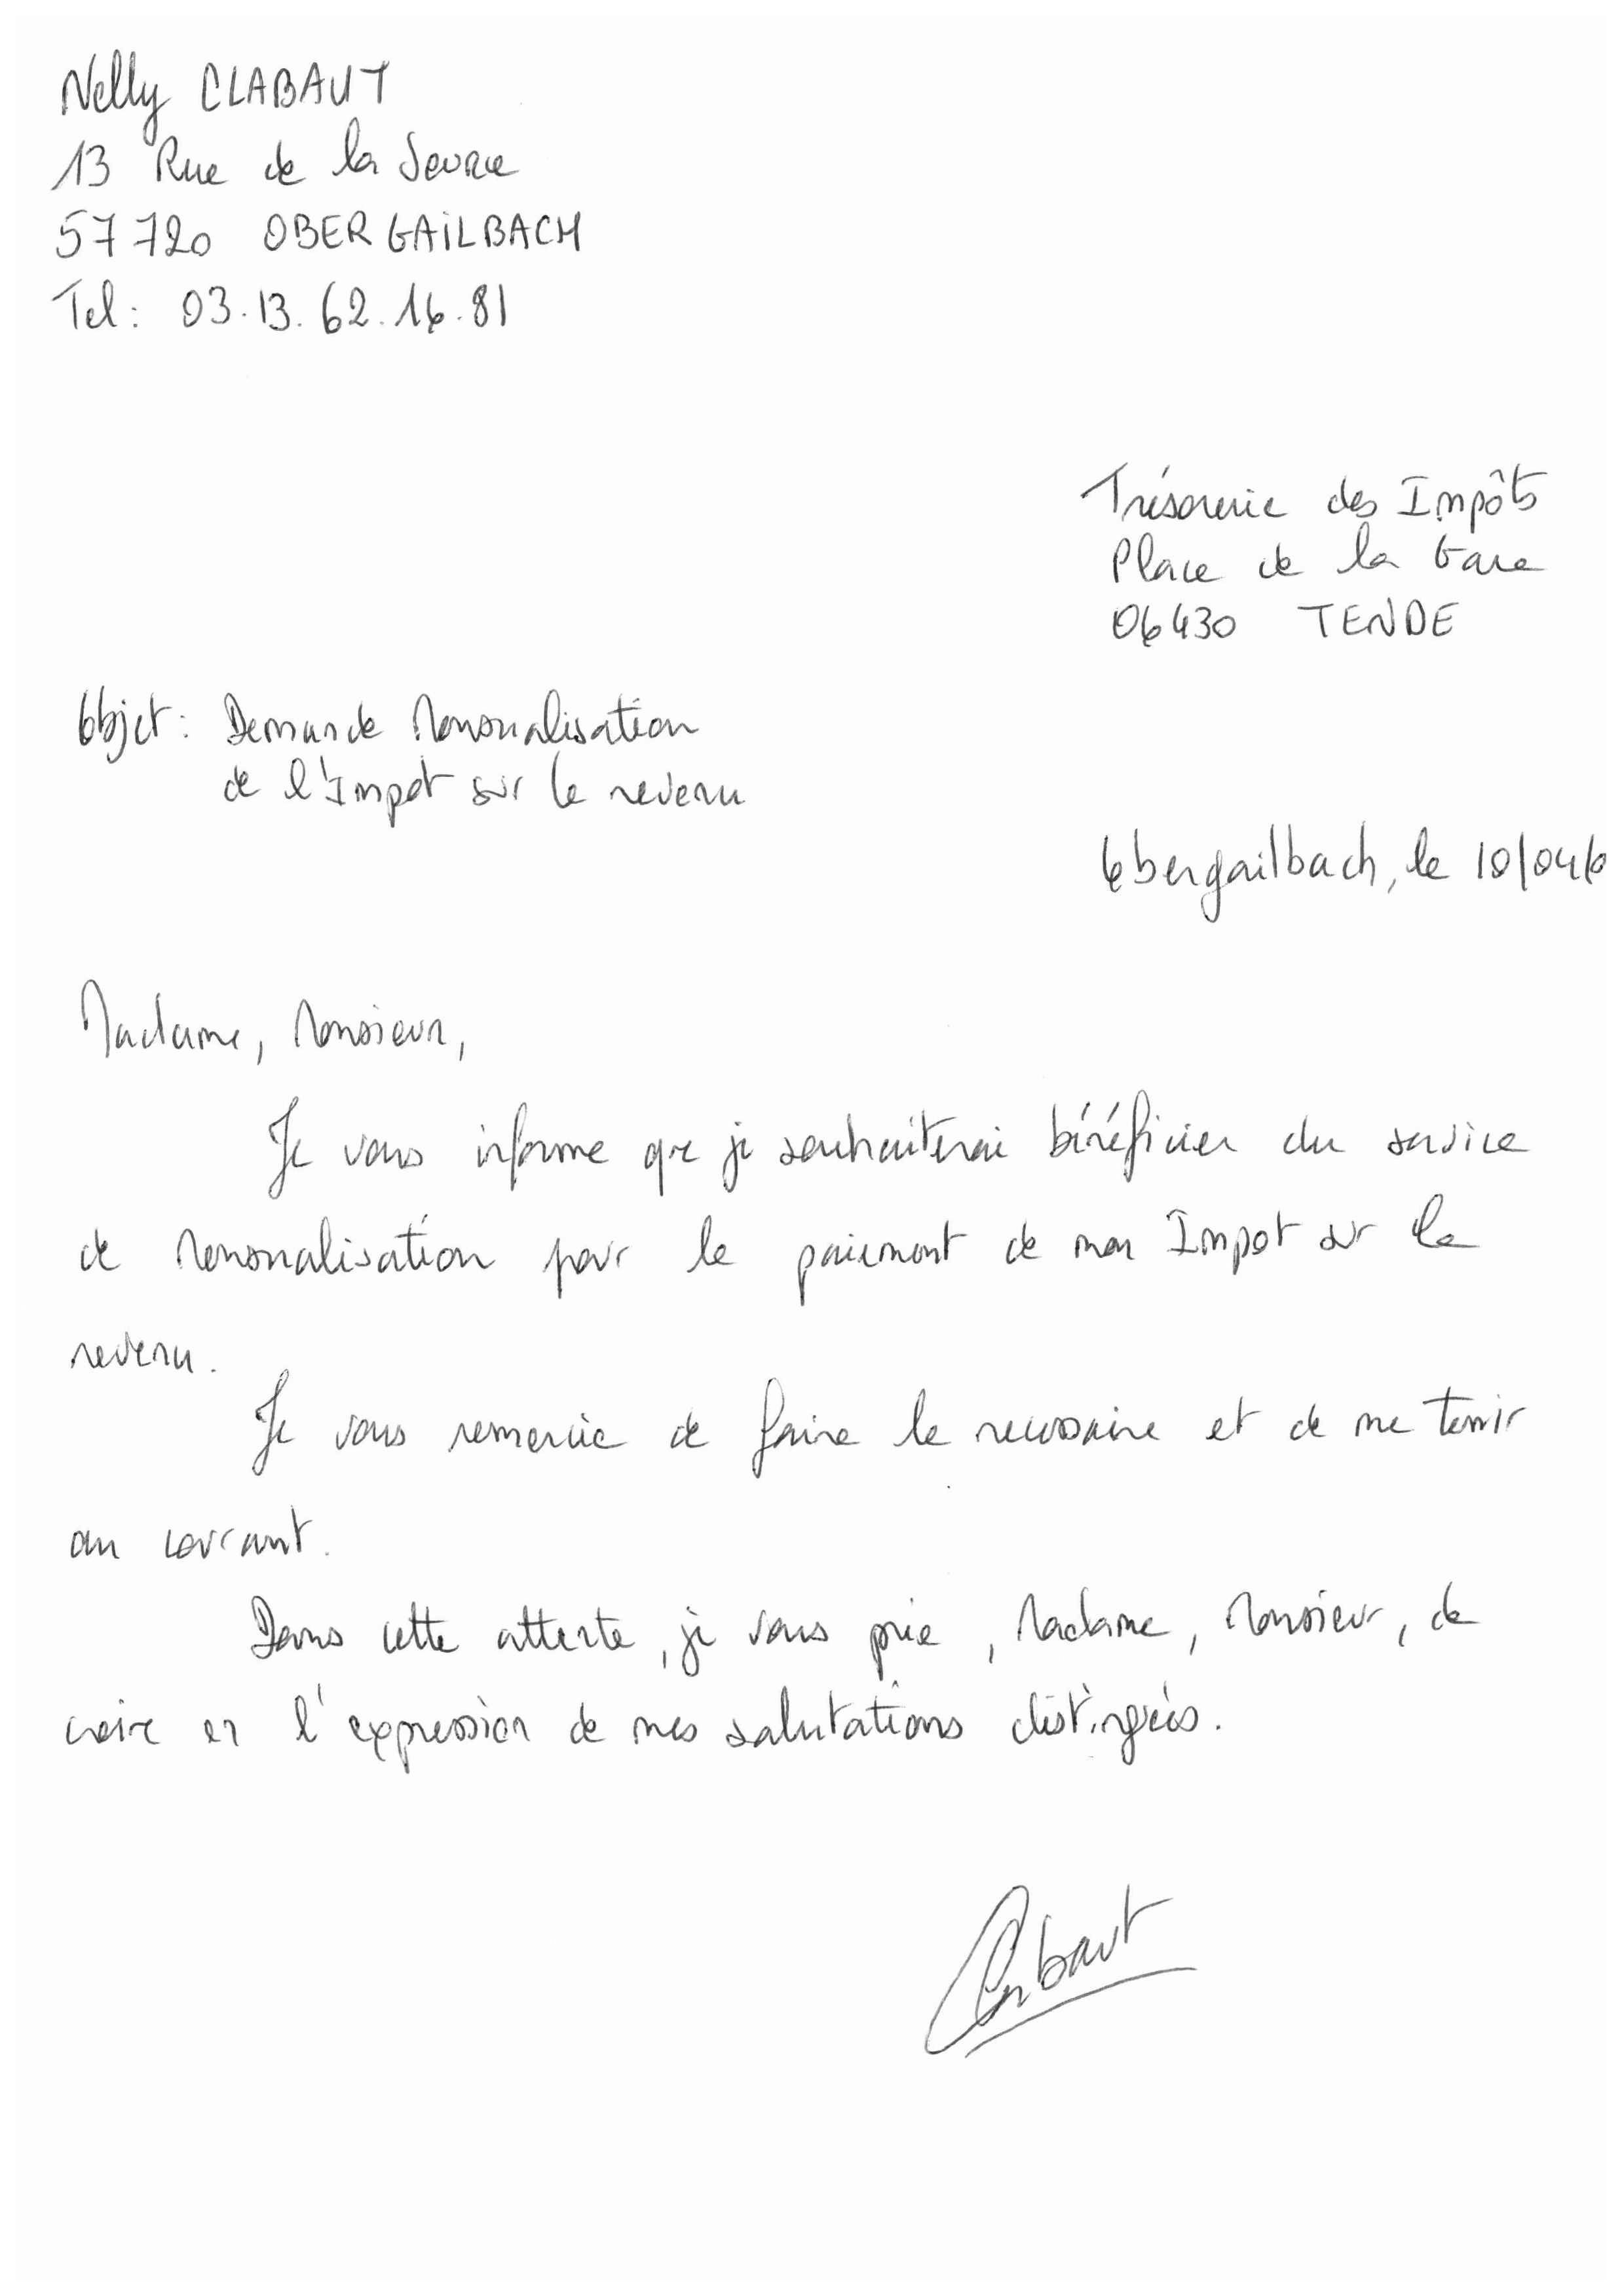 Nelly CLABAUT
13 Rue de la Seurre
57720 OBERGAILBACH
Tel: 03.13.62.16.81
Trésorerie des Impôts
Place de la Gare
06430 TENDE
Objet: Demande Mensualisation
de l'Impot sur le revenu
Obergailbach, le 10/04/0
Madame, Monsieur,
Je vous informe que je souhaiterai bénéficier du service
de Mensualisation pour le paiement de mon Impot sur le
revenu.
Je vous remercie de faire le necessaire et de me tenir
au courant.
Dans cette attente, je vous prie, Madame, Monsieur, de
croire en l'expression de mes salutations distinguées.
Clabaut